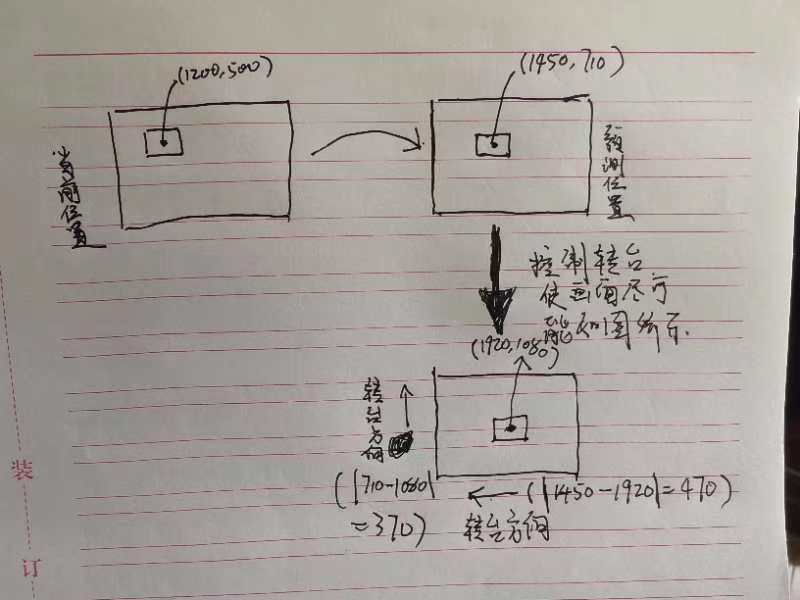 (1200,500)
(1450,710)
当前位置
预测位置
控制转台
使画面尽可
能如图所示.
(1920,1080)
转台方向
(|710-1080|
=370)
(|1450-1920|=470)
转台方向
装
订